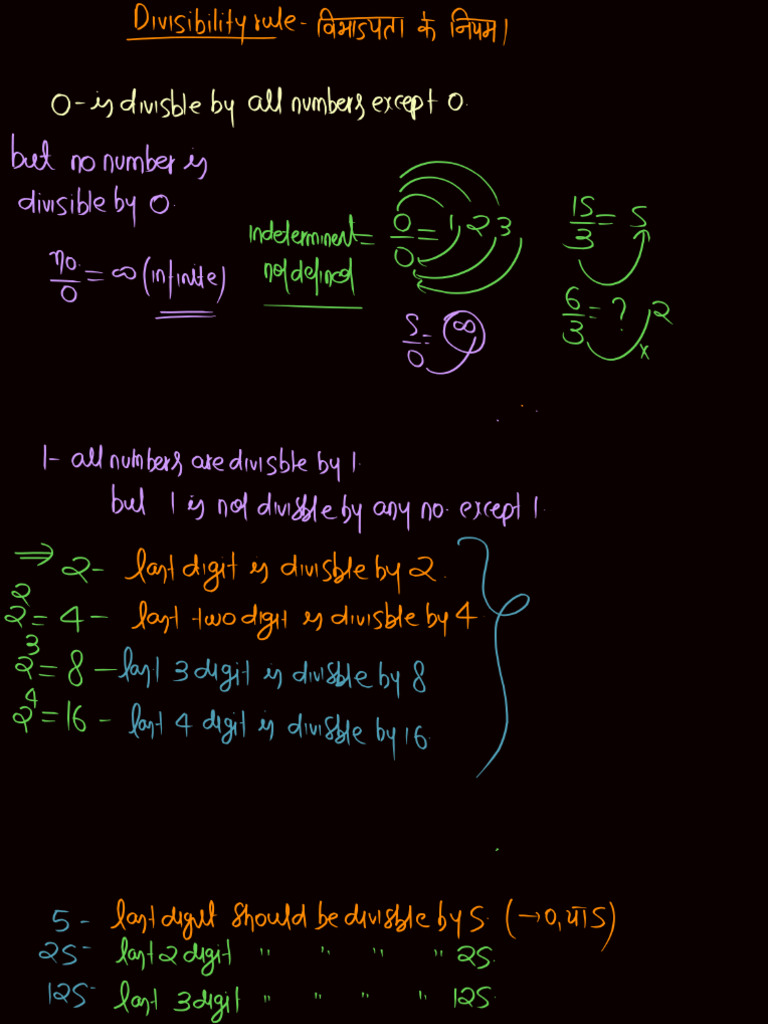 Divisibility rule - विभाज्यता के नियम।
0 - is divisble by all numbers except 0.
but no number is
divisible by 0.
no./0 = ∞ (infinite)
indeterminent = 0/0 = 1, 2 3
not defined
5/0 = ∞
15/3 = 5
6/3 = ? 2
x
1 - all numbers are divisble by 1.
but 1 is not divisble by any no. except 1.
⇒ 2 - last digit is divisble by 2.
2² = 4 - last two digit is divisble by 4
2³ = 8 - last 3 digit is divisble by 8
2⁴ = 16 - last 4 digit is divisble by 16.
5 - last digit should be divisble by 5. (→ 0, या 5)
25 - last 2 digit " " " " 25.
125 - last 3 digit " " " " 125.